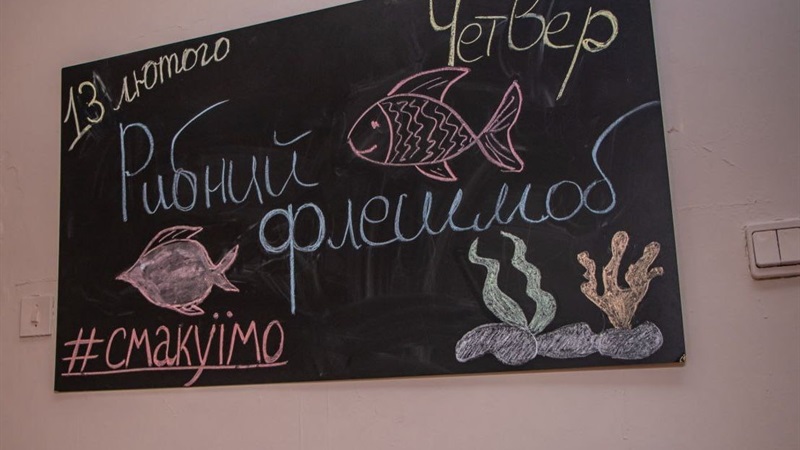 13 лютого
Четвер
Рибний
флешмоб
#смакуїмо